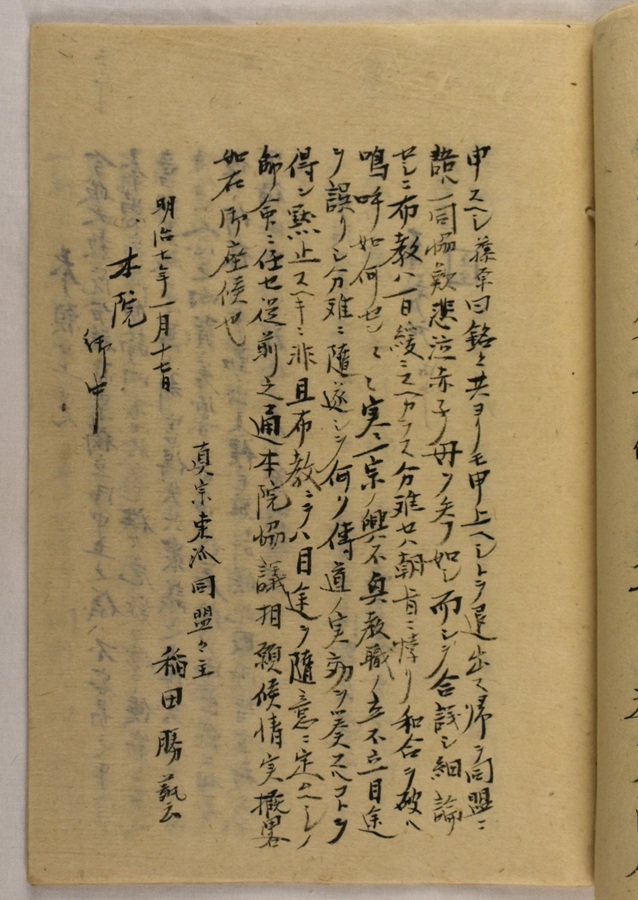 申スヘシ藤原曰銘々共ヨリモ申上ヘシトテ退出シ帰テ同盟ニ
語ル一同恊歎悲泣赤子ノ母ヲ失フ如シ而シテ合議シ細論
セシニ布教ハ一日緩ニスヘカラス分離セハ朝旨ニ悖リ和合ヲ破ヘ
嗚呼如何セン々々実ニ一宗ノ興不興教職ノ立不立目途
ヲ誤リシ分離ニ随遂シテ何ソ傳道ノ実効ヲ奏スルコトヲ
得ン黙止スヘキニ非且布教ニテハ目途ヲ随意ニ定ムヘシノ
師命ニ任セ従前之通本院恊議相願候情実概畧
如右御座候也
明治七年一月十七日
本院
御中
真宗東派同盟々主
稲田勝藝